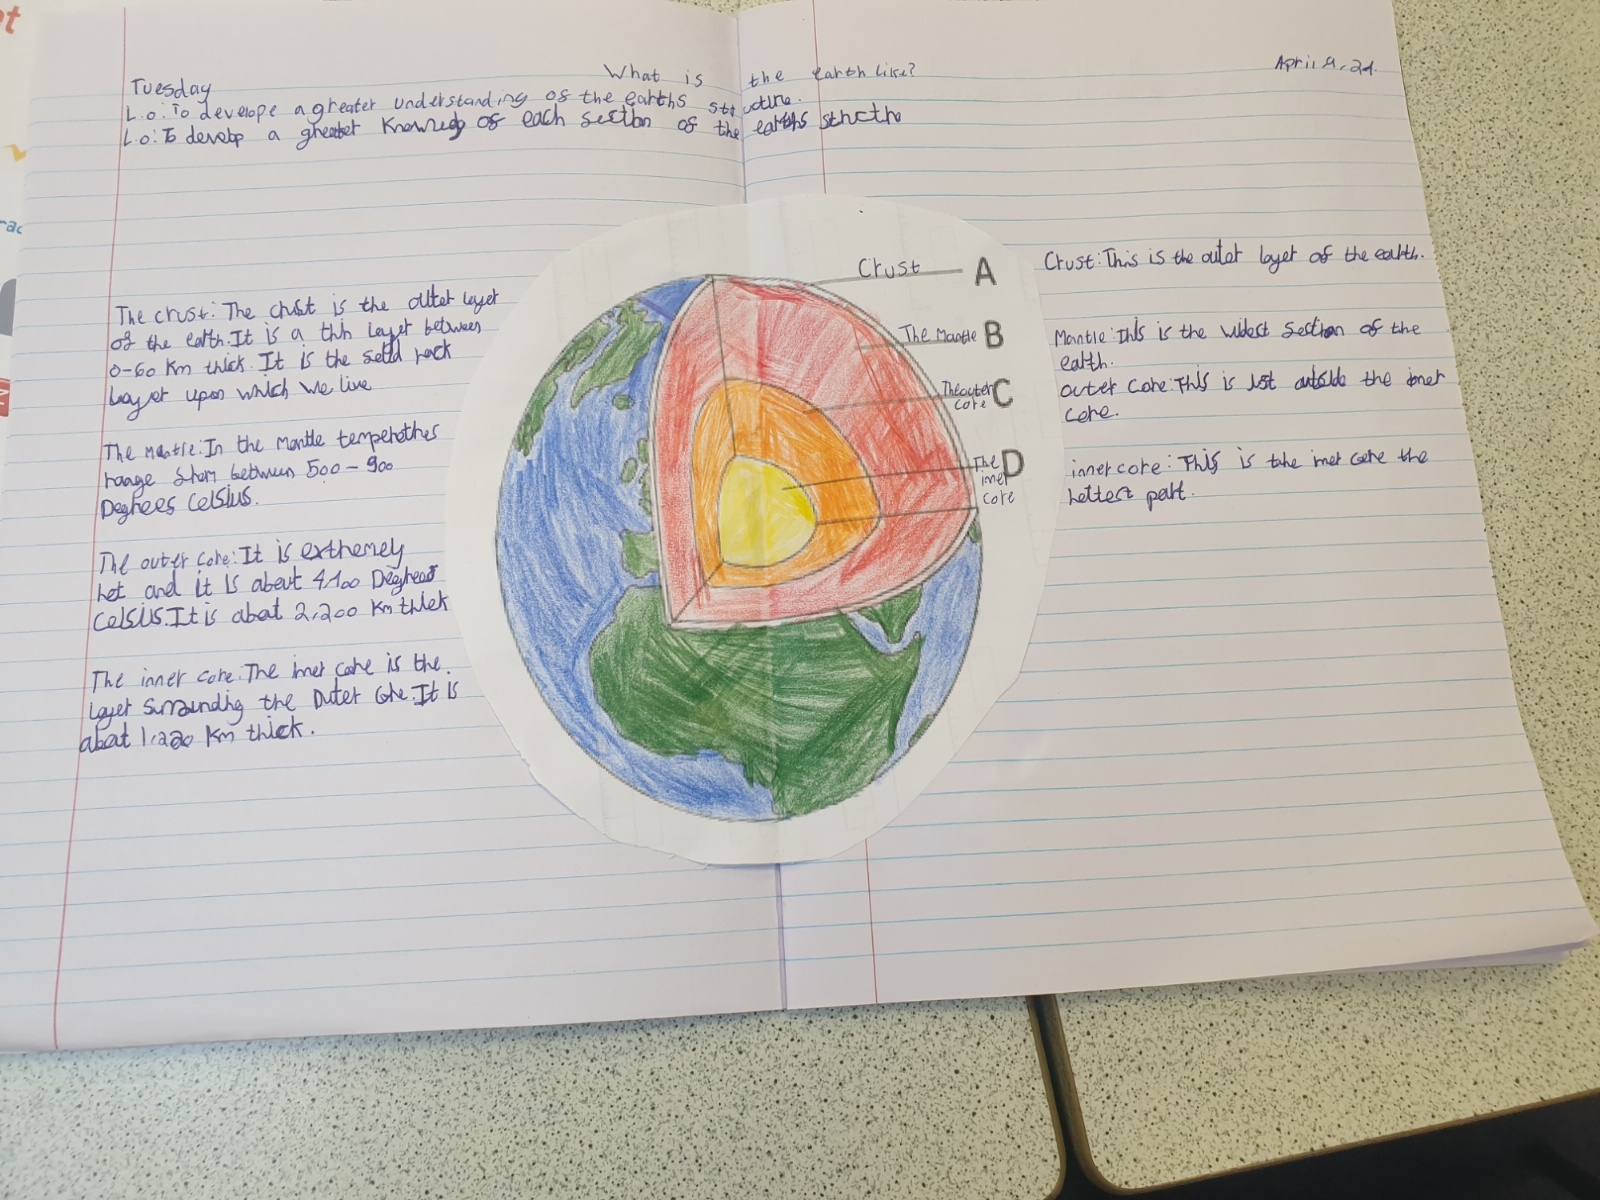 Tuesday
What is the earth like?
April 9, 24.
L.o: To develope a greater understanding of the earths structure.
L.o: To develop a greater of each section of the earths
Crust A
The Mantle B
The outer C
core
The D
iner
core
The crust: The crust is the outer layer
of the earth. It is a thin layer between
0-60 Km thick. It is the solid rock
layer upon which we live
The mantle: In the mantle
range from between 500 - 900
Degrees Celsius.
The outer core: It is extremely
hot and it is about 4100
Celsius. It is about 2,200 Km thick
The inner core: The iner core is the
layer surrounding the outer core. It is
about 1,220 Km thick.
Crust: This is the outer layer of the earth.
Mantle: This is the widest section of the
earth.
outer core: This is just outside the iner
core.
inner core: This is the iner core the
hottest part.